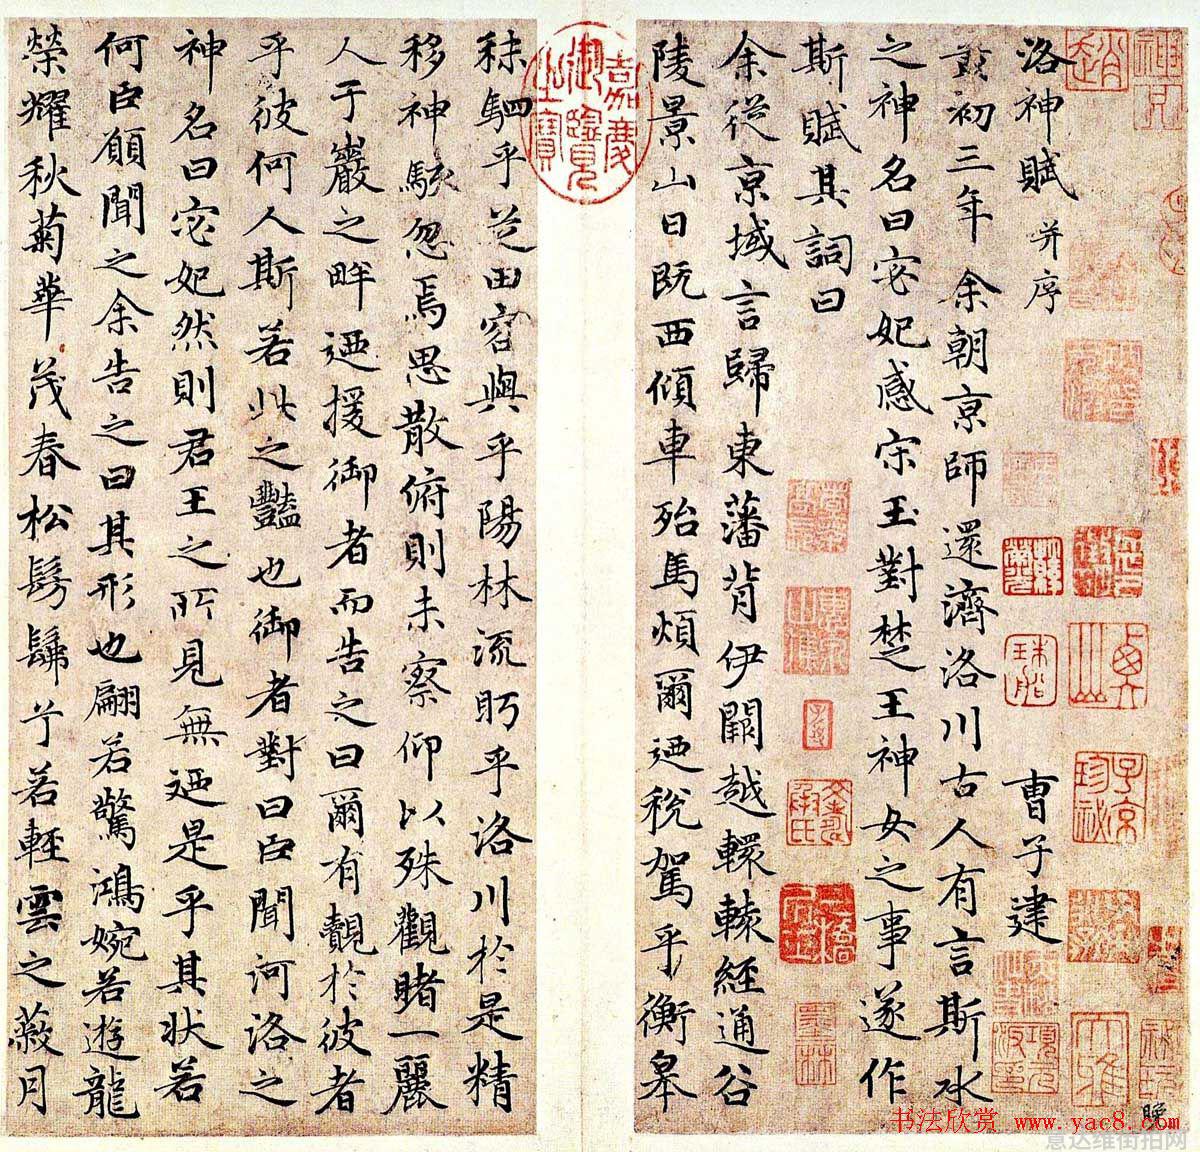 洛神賦 并序 曹子建
黃初三年余朝京師還濟洛川古人有言斯水
之神名曰宓妃感宋玉對楚王神女之事遂作
斯賦其詞曰
余從京域言歸東藩背伊闕越轘轅經通谷
陵景山日既西傾車殆馬煩爾迺稅駕乎衡皋
嘉慶御覽之寶
秣駟乎芝田容與乎陽林流眄乎洛川於是精
移神駭忽焉思散俯則未察仰以殊觀睹一麗
人于巖之畔迺援御者而告之曰爾有覿於彼者
乎彼何人斯若此之豔也御者對曰臣聞河洛之
神名曰宓妃然則君王之所見無迺是乎其狀若
何臣願聞之余告之曰其形也翩若驚鴻婉若遊龍
榮耀秋菊華茂春松髣髴兮若輕雲之蔽月
子京珍秘
墨林
书法欣赏 www.yac8.com
意达维街拍网